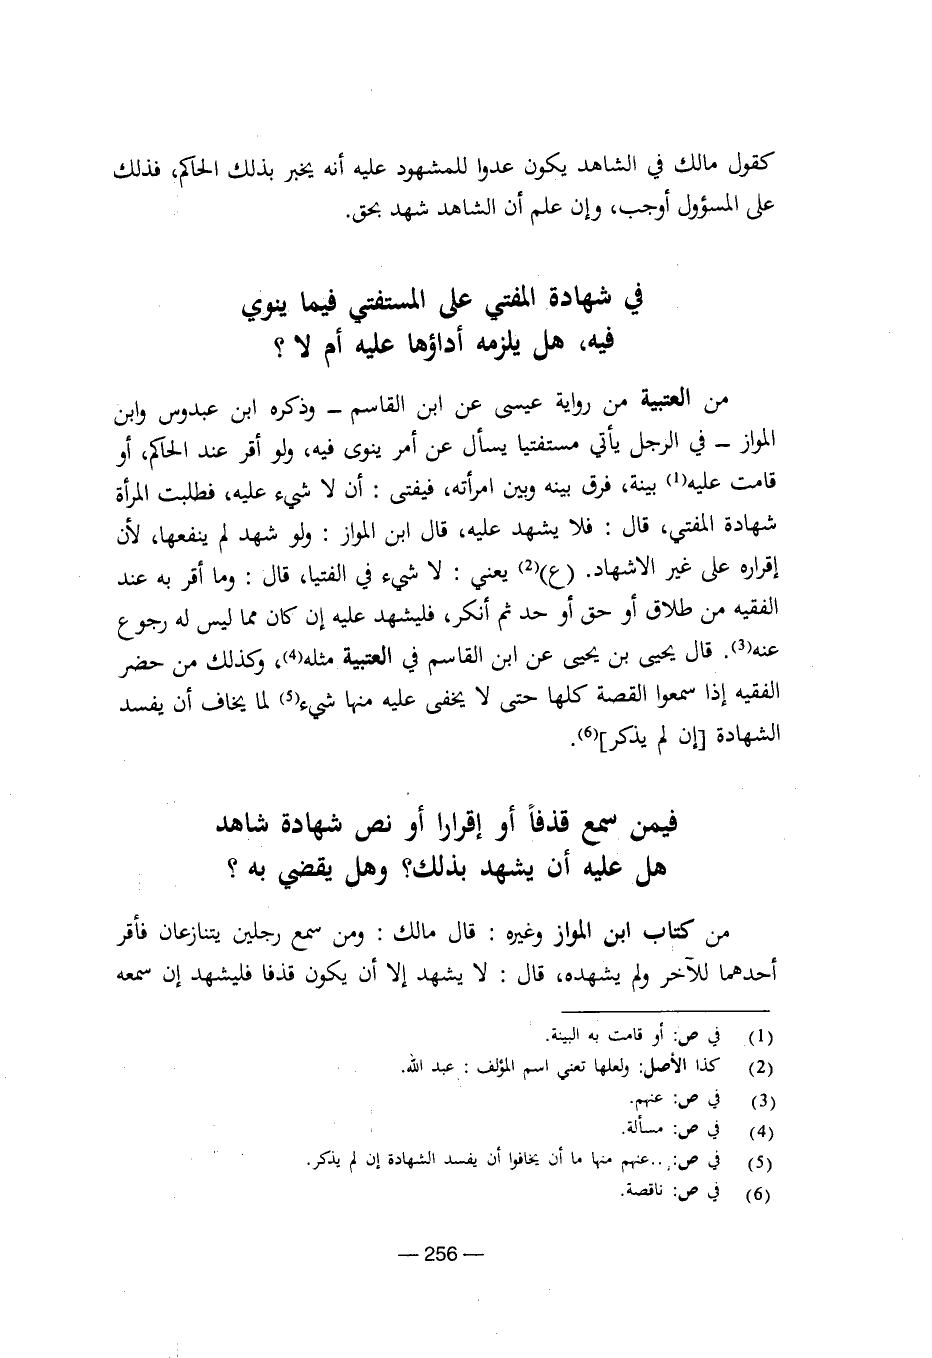 كقول مالك في الشاهد يكون عدوا للمشهود عليه أنه يخبر بذلك الحاكم، فذلك
على المسؤول أوجب، وإن علم أن الشاهد شهد بحق.
في شهادة المفتي على المستفتي فيما ينوي
فيه، هل يلزمه أداؤها عليه أم لا ؟
من العتبية من رواية عيسى عن ابن القاسم – وذكره ابن عبدوس وابن
المواز – في الرجل يأتي مستفتيا يسأل عن أمر ينوى فيه، ولو أقر عند الحاكم، أو
قامت عليه(1) بينة، فرق بينه وبين امرأته، فيفتى : أن لا شيء عليه، فطلبت المرأة
شهادة المفتي، قال : فلا يشهد عليه، قال ابن المواز : ولو شهد لم ينفعها، لأن
إقراره على غير الاشهاد. (ع)(2) يعني : لا شيء في الفتيا، قال : وما أقر به عند
الفقيه من طلاق أو حق أو حد ثم أنكر، فليشهد عليه إن كان مما ليس له رجوع
عنه(3). قال يحيى بن يحيى عن ابن القاسم في العتبية مثله(4)، وكذلك من حضر
الفقيه إذا سمعوا القصة كلها حتى لا يخفى عليه منها شيء(5) لما يخاف أن يفسد
الشهادة [إن لم يذكر](6).
فيمن سمع قذفاً أو إقرارا أو نص شهادة شاهد
هل عليه أن يشهد بذلك؟ وهل يقضي به ؟
من كتاب ابن المواز وغيره : قال مالك : ومن سمع رجلين يتنازعان فأقر
أحدهما للآخر ولم يشهده، قال : لا يشهد إلا أن يكون قذفا فليشهد إن سمعه
(1) في ص: أو قامت به البينة.
(2) كذا الأصل: ولعلها تعني اسم المؤلف : عبد الله.
(3) في ص: عنهم.
(4) في ص: مسألة.
(5) في ص: ..عنهم منها ما أن يخافوا أن يفسد الشهادة إن لم يذكر.
(6) في ص: ناقصة.
— 256 —